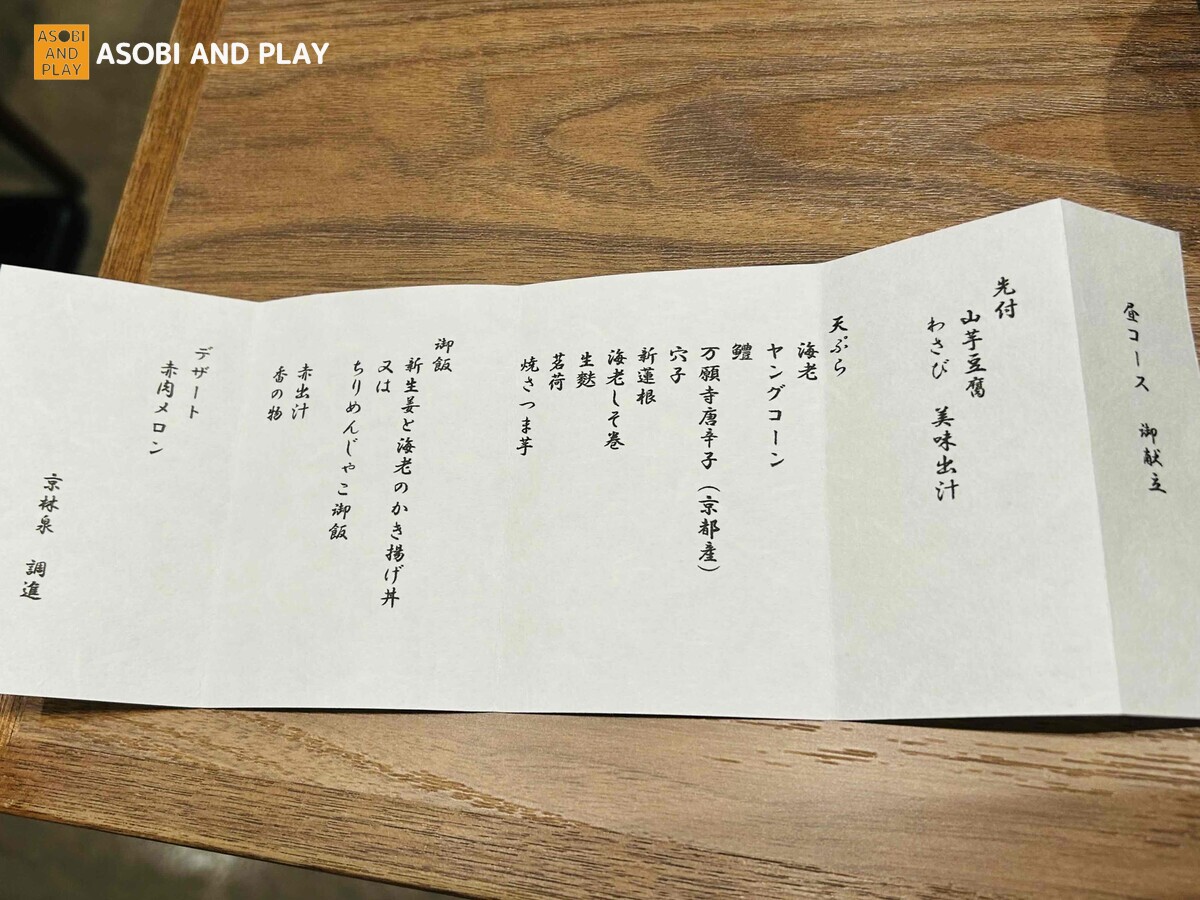 ASOBI
AND
PLAY
ASOBI AND PLAY
昼コース 御献立
先付
山芋豆腐
わさび 美味出汁
天ぷら
海老
ヤングコーン
鱧
万願寺唐辛子（京都産）
穴子
新蓮根
海老しそ巻
生麩
茗荷
焼きつま芋
御飯
新生姜と海老のかき揚げ丼
又は
ちりめんじゃこ御飯
赤出汁
香の物
デザート
赤肉メロン
京林泉 調進